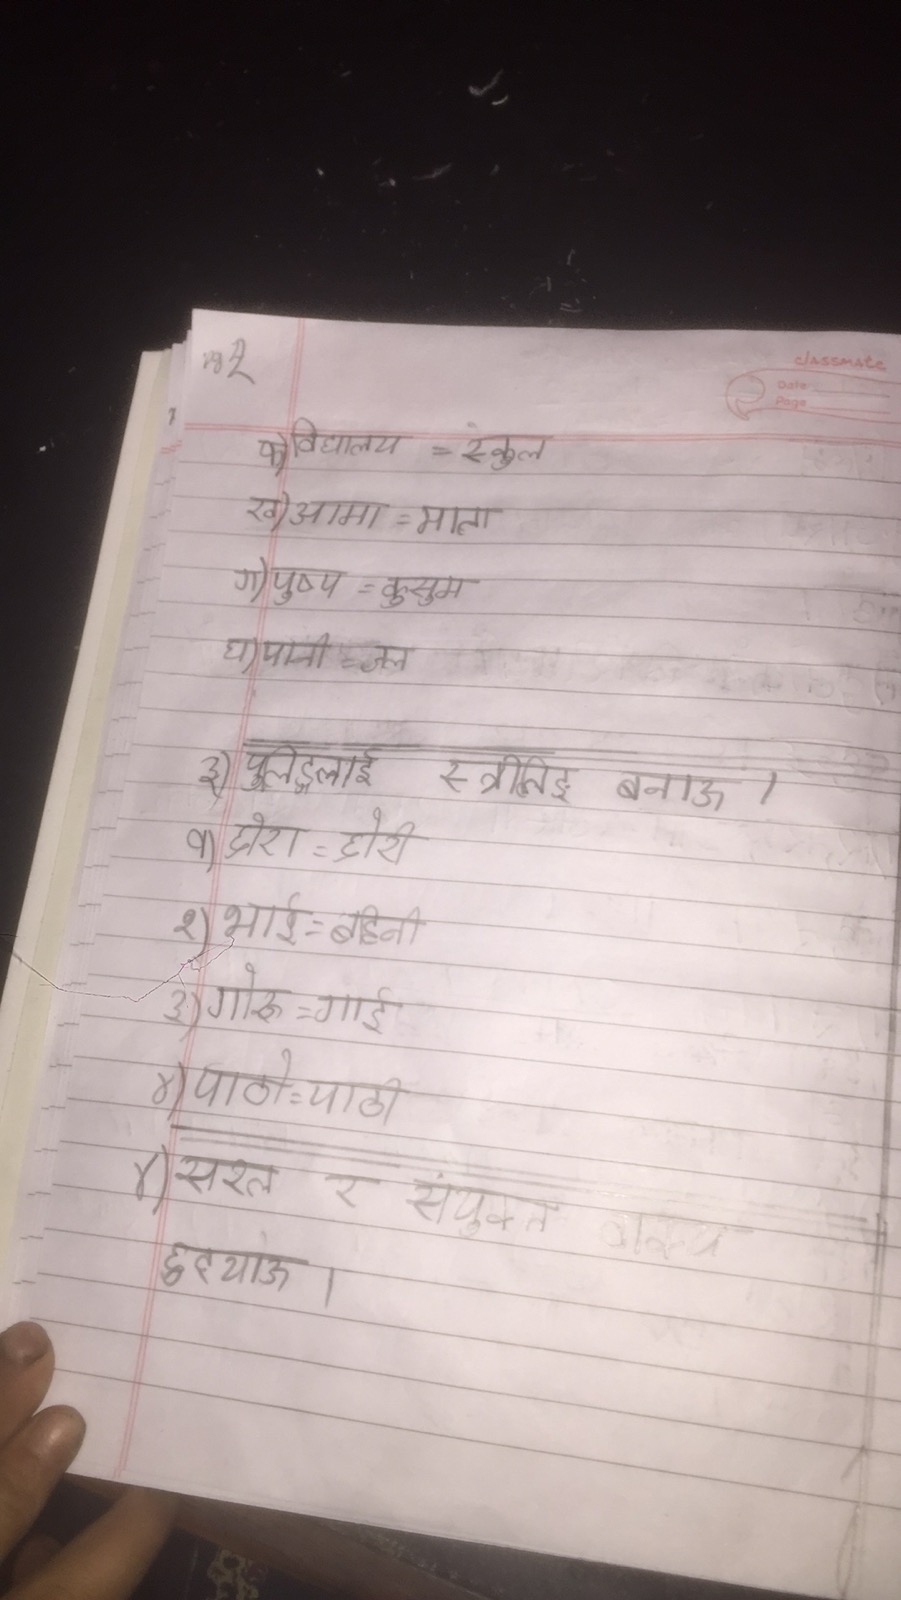 classmate
Date
Page
क) विद्यालय = स्कुल
ख) आमा = माता
ग) पुष्प = कुसुम
घ) पानी = जल
३) पुलिङ्गलाई स्त्रीलिङ्ग बनाऊ ।
१) छोरा = छोरी
२) भाई = बहिनी
३) गोरू = गाई
४) पाठो = पाठी
४) सरल र संयुक्त वाक्य
छुट्याऊ ।